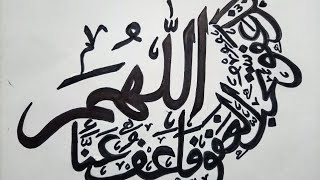 اللَّهُمَّ
عفو تحب العفو فاعف عنَّا